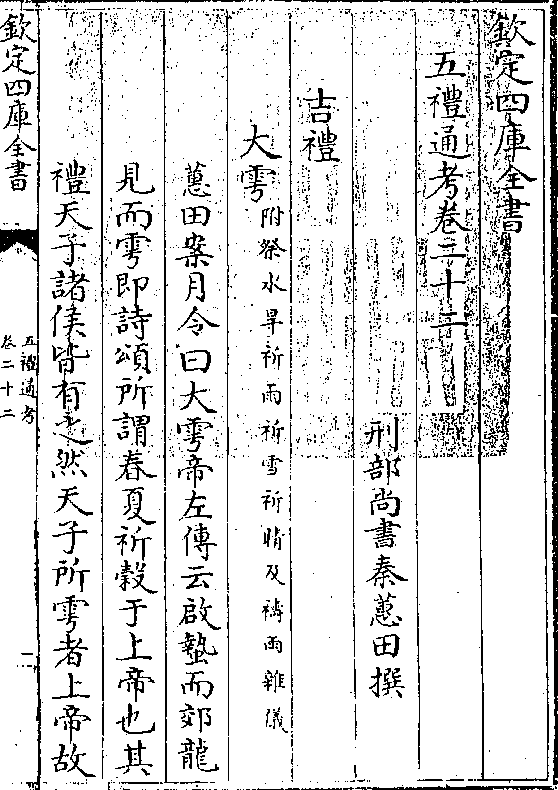 欽定四庫全書
五禮通考卷二十二
刑部尚書秦蕙田撰
吉禮
大雩附祭水旱祈雨祈雪祈晴及禱雨雜儀
蕙田案月令曰大雩帝左傳云啟蟄而郊龍
見而雩即詩頌所謂春夏祈榖于上帝也其
禮天子諸侯皆有之然天子所雩者上帝故
欽定四庫全書
五禮通考
卷二十二
一